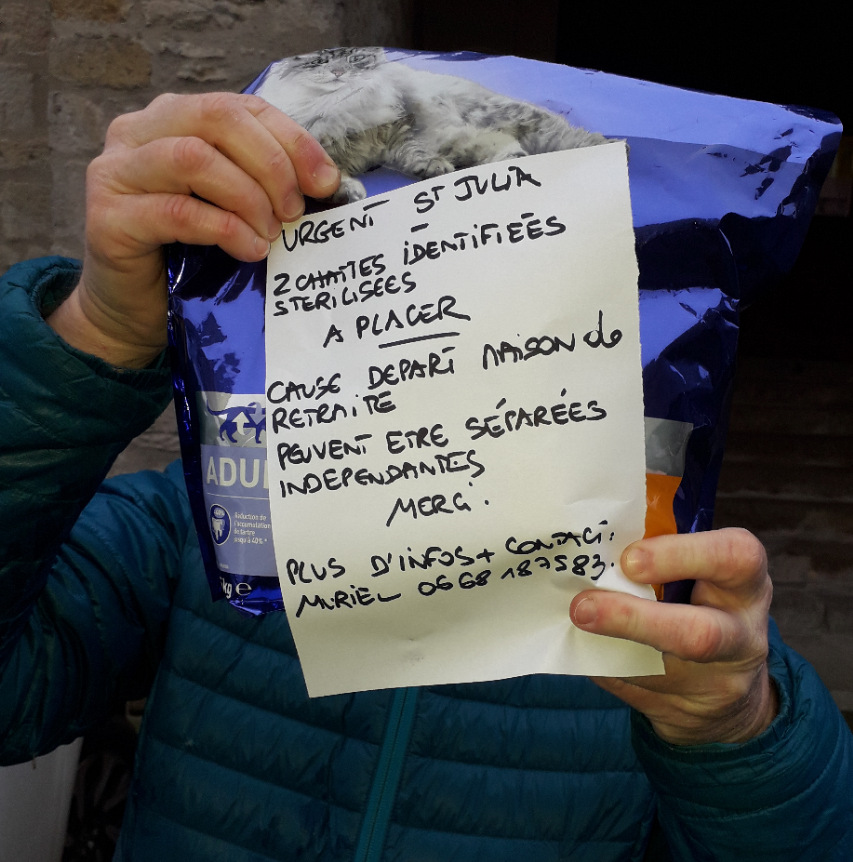 URGENT ST JULIA
-
2 CHATTES IDENTIFIEÉS
STERILISEES
A PLACER
CAUSE DEPART MAISON de
RETRAITE
PEUVENT ETRE SÉPARÉES
INDEPENDANTES
MERCI.
PLUS D'INFOS + CONTACT:
MURIEL 0668 187583.
ADUL
Réduction de
l'accumulation
de tartre
jusqu'à 40%*
kg e